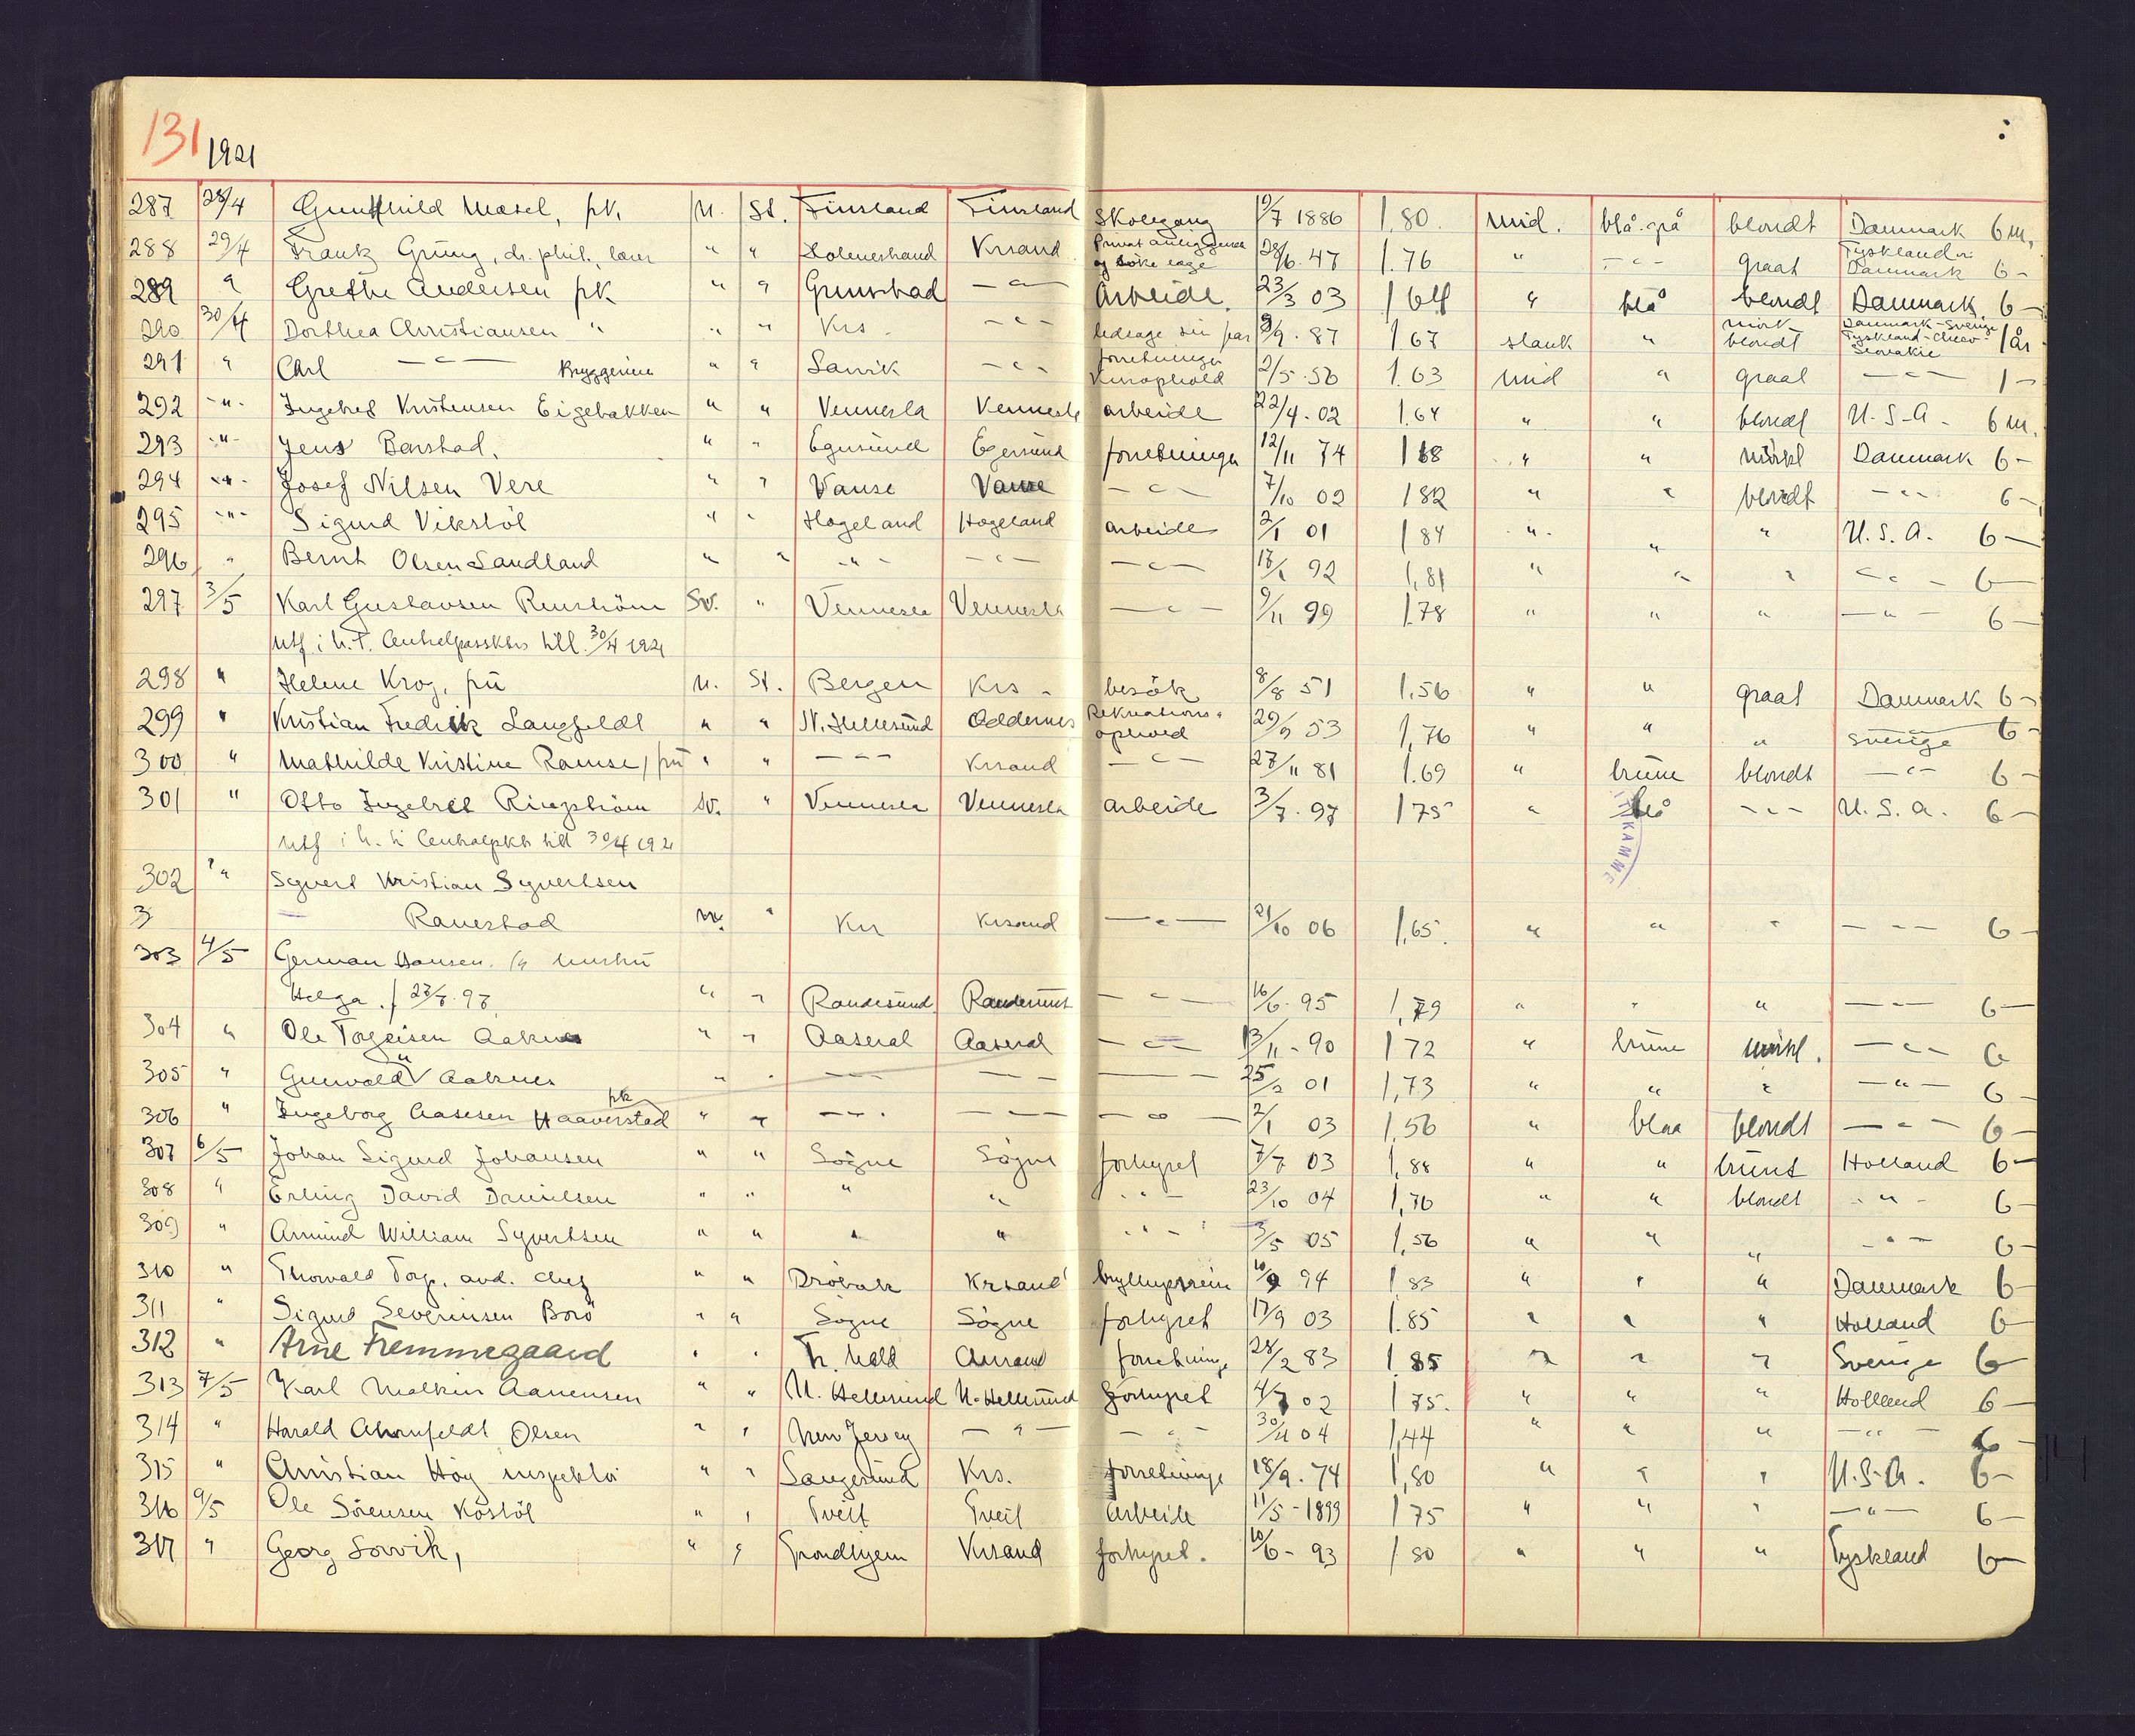 131 1921
287 28/4 Gunhild Mæsel, pk. N. St. Finsland Finsland Skolegang 9/7 1886 1.80. mid. blå-grå blondt Danmark 6 m.
288 29/4 Frantz Grüng, dr. phil., lærer " " Holmestrand Krsand 28/6.47 1.76 " - " - graat Tyskland Danmark 6 -
289 " Grethe Andersen pk " " Grimstad - " - Arbeide. 23/3 03 1 64 " blå blondt Danmark. 6 -
290 30/4 Dorthea Christiansen " " " Krs. - " - ledsage sin far 9/9.87 1 67 slank " mørk blondt Danmark - Sverige Tyskland - 1 år
291 " Carl - " - Bryggerieier " " Larvik - " - forretninger Kurophold 2/5.56 1.63 mid " graat - " - 1 -
292 - " - Ingebret Kristensen Eigebakken " " Vennesla Vennesla arbeide 22/4.02 1.64 " " blondt U.S.A. 6 m.
293 - " - Jens Barstad. " " Egersund Egersund forretninger 12/11 74 1 68 " " mörkt Danmark 6 -
294 - " - Josef Nilsen Vere " " Vanse Vanse - " - 7/10 02 1 82 " " blondt - " - 6 -
295 - " - Sigurd Vikstöl " " Hægeland Hægeland arbeide 2/1 01 1 84 " " " U.S.A. 6 -
296 " Bernt Olsen Sandland " " - " - - " - - " - 92 1,81 " " " - " - 6 -
297 3/5 Karl Gustavsen Renström Sv. " Vennesla Vennesla - " - 9/11 99 1.78 " " " - " - 6 -
Utf. i h.t. Centralpasskts till. 30/4 1921
298 " Helene Krog, frü N. St. Bergen Krs - besök 8/8 51 1.56 " " graat Danmark 6 -
299 " Kristian Fredrik Langfeldt " " N. Hellesund Oddernes Rekreations-ophold 29/9 53 1,76 " " " Sverige 6 -
300 " Mathilde Kristine Ramse, frü " " - " - Krsand - " - 27/11 81 1.69 " brüne blondt - " - 6 -
301 " Otto Ingebret Ringström Sv. " Vennesla Vennesla arbeide 3/7.97 1 75 " blå - " - U.S.A. 6 -
Utf i h. t. Centralpkts till 30/4 1921
KAMME
302 " Syvert Kristian Syvertsen
3 Ranestad N. " Kr Krsand - " - 21/10 06 1,65. " " " - " - 6 -
303 4/5 German Hansen. hustrü
Helga. f 27/7.97 " " Randesund Randesund - " - 16/6.95 1,79 " " " - " - 6 -
304 " Ole Torgeisen Aaknes " " Aaseral Aaseral - " - 13/11-90 1 72 " brüne mörkt. - " - 6
305 " Gunvald " Aaknes " " - " - - " - - " - 25/2 01 1,73 " " " - " - 6 -
306 " Ingeborg Aasesen Haaverstad pk " " - " - - " - - " - 2/1 03 1,56 " blaa blondt - " - 6 -
307 6/5 Johan Sigurd Johansen " " Søgne Søgne forhyret 7/7 03 1,88 " " brünt Holland 6 -
308 " Erling David Danielsen " " " " - " - 23/10 04 1,76 " " blondt - " - 6 -
309 " Armünd William Syvertsen " " " " - " - 3/5 05 1,56 " " " - " - 6 -
310 " Thorvald Torp, avd. chef " " Dröbak Krsand bryllupsreise 10/9 94 1,83 " " " Danmark 6 -
311 " Sigurd Severinsen Borö " " Sögne Sögne forhyret 17/9 03 1.85 " " " Holland 6 -
312 " Arne Fremmegaard " " forretninger 28/2 83 1.85 " " " Sverige 6 -
313 7/5 Karl Aanensen " " N. Hellesund N. Hellesund forhyret 4/7 02 1 75. " " " Holland 6 -
314 " Harald Olsen " " New Jersey - " - - " - 30/11 04 1,44 " " " - " - 6 -
315 " Christian Höy inspektör " " Langesund Krs. forretninger 18/9.74 1,80 " " " U.S.A. 6 -
316 9/5 Ole Sörensen Kostöl " " Tveit Tveit Arbeide 11/5-1899 1 75 " " " - " - 6 -
317 " Georg Sorvik, " " Trondhjem Krsand forhyret. 10/6-93 1 80 " " " Tyskland 6 -